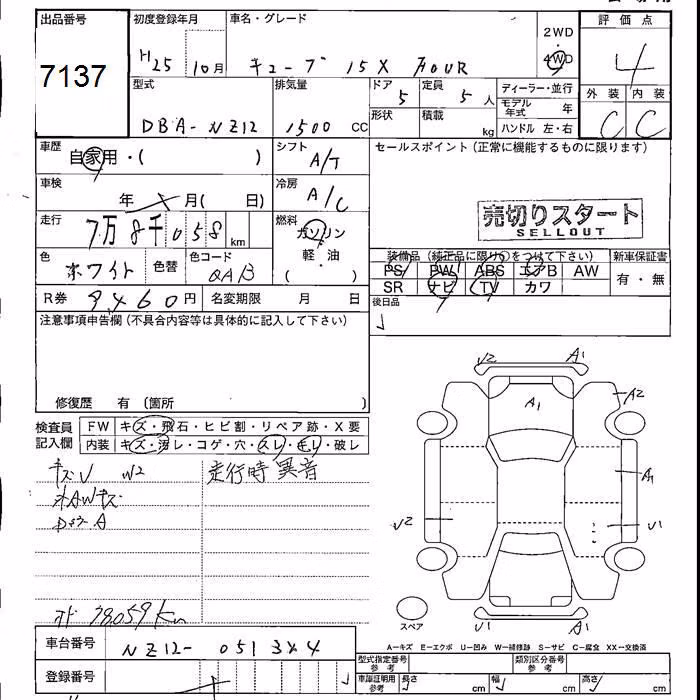 出品番号
7137
初度登録年月
H25 10月
車名・グレード
キューブ 15X FOUR
2WD
4WD
評価点
4
外装 内装
C C
型式
DBA-NZ12
排気量
1500 CC
ドア
5
定員
5 人
形状
積載
kg
ディーラー・並行
モデル年式 年
ハンドル 左・右
車歴
自家用・( )
シフト
A/T
セールスポイント(正常に機能するものに限ります)
車検
年 月( 日)
冷房
A/C
走行
7万8千058 km
燃料
ガソリン
軽・油
( )
売切りスタート
SELLOUT
色
ホワイト
色替
色コード
QAB
装備品(純正品に限り○をつけて下さい)
PS PW ABS エアB AW
SR ナビ TV カワ
新車保証書
有・無
R券 9460円
名変期限 月 日
後日品
注意事項申告欄(不具合内容等は具体的に記入して下さい)
修復歴 有(箇所 )
検査員記入欄
FW キズ・飛石・ヒビ割・リペア跡・X要
内装 キズ・汚レ・コゲ・穴・スレ・モレ・破レ
キズU W2
走行時異音
オ 78059km
V2 A1
A1
A2
A1
V2
U1
U1 A1
スペア
A－キズ E－エクボ U－凹み W－補修跡 S－サビ C－腐食 XX－交換済
車台番号
NZ12-051344
登録番号
型式指定番号 参考
類別区分番号 参考
車庫証明用 参考
長さ cm
幅 cm
高さ cm